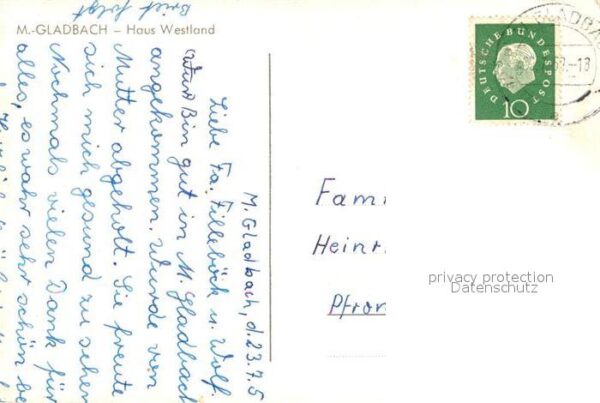 M.-GLADBACH – Haus Westland
Brief folgt
M. Gladbach, d. 23.7.5
Liebe Fa. Filleböck u. Wolf.
Bin gut in M. Gladbach
angekommen. Wurde von
Mutter abgeholt. Sie freute
sich mich gesund zu sehen
Nochmals vielen Dank für
alles, es wahr sehr schön be
DEUTSCHE BUNDESPOST
10
GLADBA
-13
Fami
Heinr.
Pfron
privacy protection
Datenschutz